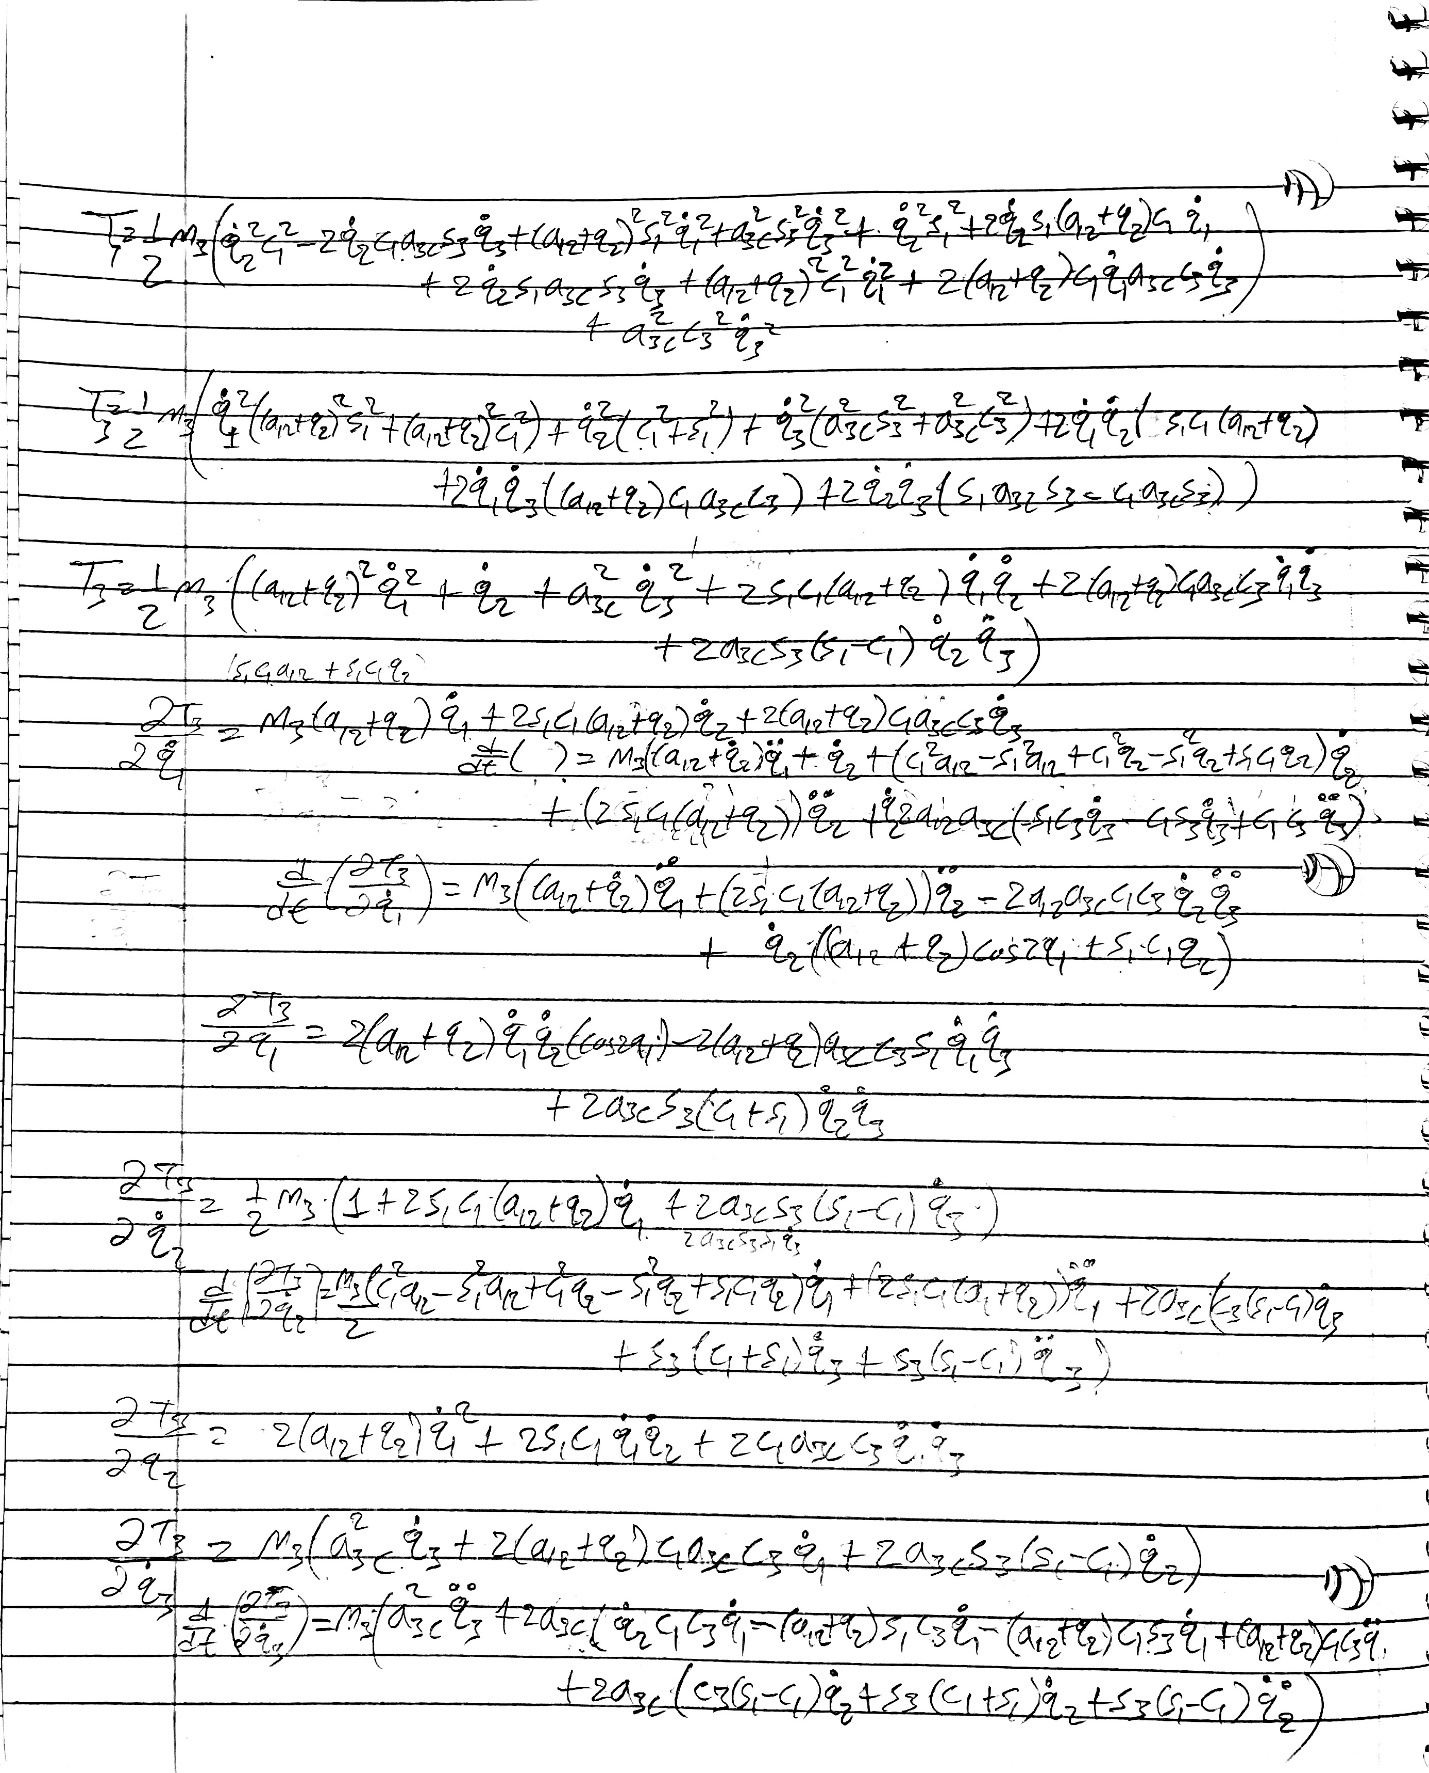 T₃=1/2 m₃(q̇₂²c₁² − 2q̇₂c₁a₃cs₃q̇₃ + (a₁₂+q₂)²s₁²q̇₁² + a₃c²s₃²q̇₃² + q̇₂²s₁² + 2q̇₂s₁(a₁₂+q₂)c₁q̇₁
+ 2q̇₂s₁a₃cs₃q̇₃ + (a₁₂+q₂)²c₁²q̇₁² + 2(a₁₂+q₂)c₁q̇₁a₃cc₃q̇₃)
+ a₃c²c₃²q̇₃²
T₃=1/2 m₃(q̇₁²((a₁₂+q₂)²s₁²+(a₁₂+q₂)²c₁²) + q̇₂²(c₁²+s₁²) + q̇₃²(a₃c²s₃²+a₃c²c₃²) + 2q̇₁q̇₂(s₁c₁(a₁₂+q₂)
+2q̇₁q̇₃((a₁₂+q₂)c₁a₃cc₃) + 2q̇₂q̇₃(s₁a₃cs₃ − c₁a₃cs₃))
T₃=1/2 m₃((a₁₂+q₂)²q̇₁² + q̇₂ + a₃c²q̇₃² + 2s₁c₁(a₁₂+q₂)q̇₁q̇₂ + 2(a₁₂+q₂)c₁a₃cc₃q̇₁q̇₃
+ 2a₃cs₃(s₁−c₁)q̇₂q̇₃)
s₁c₁a₁₂ + s₁c₁q₂
∂T₃/∂q̇₁ = m₃(a₁₂+q₂)q̇₁ + 2s₁c₁(a₁₂+q₂)q̇₂ + 2(a₁₂+q₂)c₁a₃cc₃q̇₃
d/dt( ) = m₃((a₁₂+q̇₂)q̈₁ + q̇₂ + (c₁²a₁₂ − s₁²a₁₂ + c₁²q₂ − s₁²q₂ + s₁c₁q₂)q̇₂
+ (2s₁c₁(a₁₂+q₂))q̈₂ + q̇₂2a₁₂a₃c(−s₁c₃q̇₃ − c₁s₃q̇₃ + c₁c₃q̈₃)
d/dt(∂T₃/∂q̇₁) = m₃((a₁₂+q̇₂)q̈₁ + (2s₁c₁(a₁₂+q₂))q̈₂ − 2a₁₂a₃cc₁c₃q̇₂q̈₃
+ q̇₂((a₁₂+q₂)cos2q₁ + s₁c₁q₂)
∂T₃/∂q₁ = 2(a₁₂+q₂)q̇₁q̇₂(cos2q₁) − 2(a₁₂+q₂)a₃cc₃s₁q̇₁q̇₃
+ 2a₃cs₃(c₁+s₁)q̇₂q̇₃
∂T₃/∂q̇₂ = 1/2 m₃(1 + 2s₁c₁(a₁₂+q₂)q̇₁ + 2a₃cs₃(s₁−c₁)q̇₃)
2a₃cs₃s₁q̇₃
d/dt(∂T₃/∂q̇₂) = m₃/2(c₁²a₁₂ − s₁²a₁₂ + c₁²q₂ − s₁²q₂ + s₁c₁q₂)q̇₁ + (2s₁c₁(a₁+q₂))q̈₁ + 2a₃c(c₃(s₁−c₁)q̇₃
+ s₃(c₁+s₁)q̇₃ + s₃(s₁−c₁)q̈₃)
∂T₃/∂q₂ = 2(a₁₂+q₂)q̇₁² + 2s₁c₁q̇₁q̇₂ + 2c₁a₃cc₃q̇₁q̇₃
∂T₃/∂q̇₃ = m₃(a₃c²q̇₃ + 2(a₁₂+q₂)c₁a₃cc₃q̇₁ + 2a₃cs₃(s₁−c₁)q̇₂)
d/dt(∂T₃/∂q̇₃) = m₃(a₃c²q̈₃ + 2a₃c(q̇₂c₁c₃q̇₁ − (a₁₂+q₂)s₁c₃q̇₁ − (a₁₂+q₂)c₁s₃q̇₁ + (a₁₂+q₂)c₁c₃q̈₁
+ 2a₃c(c₃(s₁−c₁)q̇₂ + s₃(c₁+s₁)q̇₂ + s₃(s₁−c₁)q̈₂)